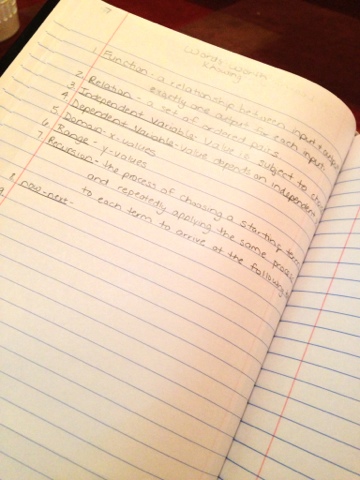 Words Worth
Knowing
1. Function - a relationship between input + output
exactly one output for each input.
2. Relation - a set of ordered pairs
3. Independent Variable - value is subject to choice
4. Dependent Variable - value depends on independent
5. Domain - x-values
6. Range - y-values
7. Recursion - the process of choosing a starting term
and repeatedly applying the same process
to each term to arrive at the following
8. now-next -
9.